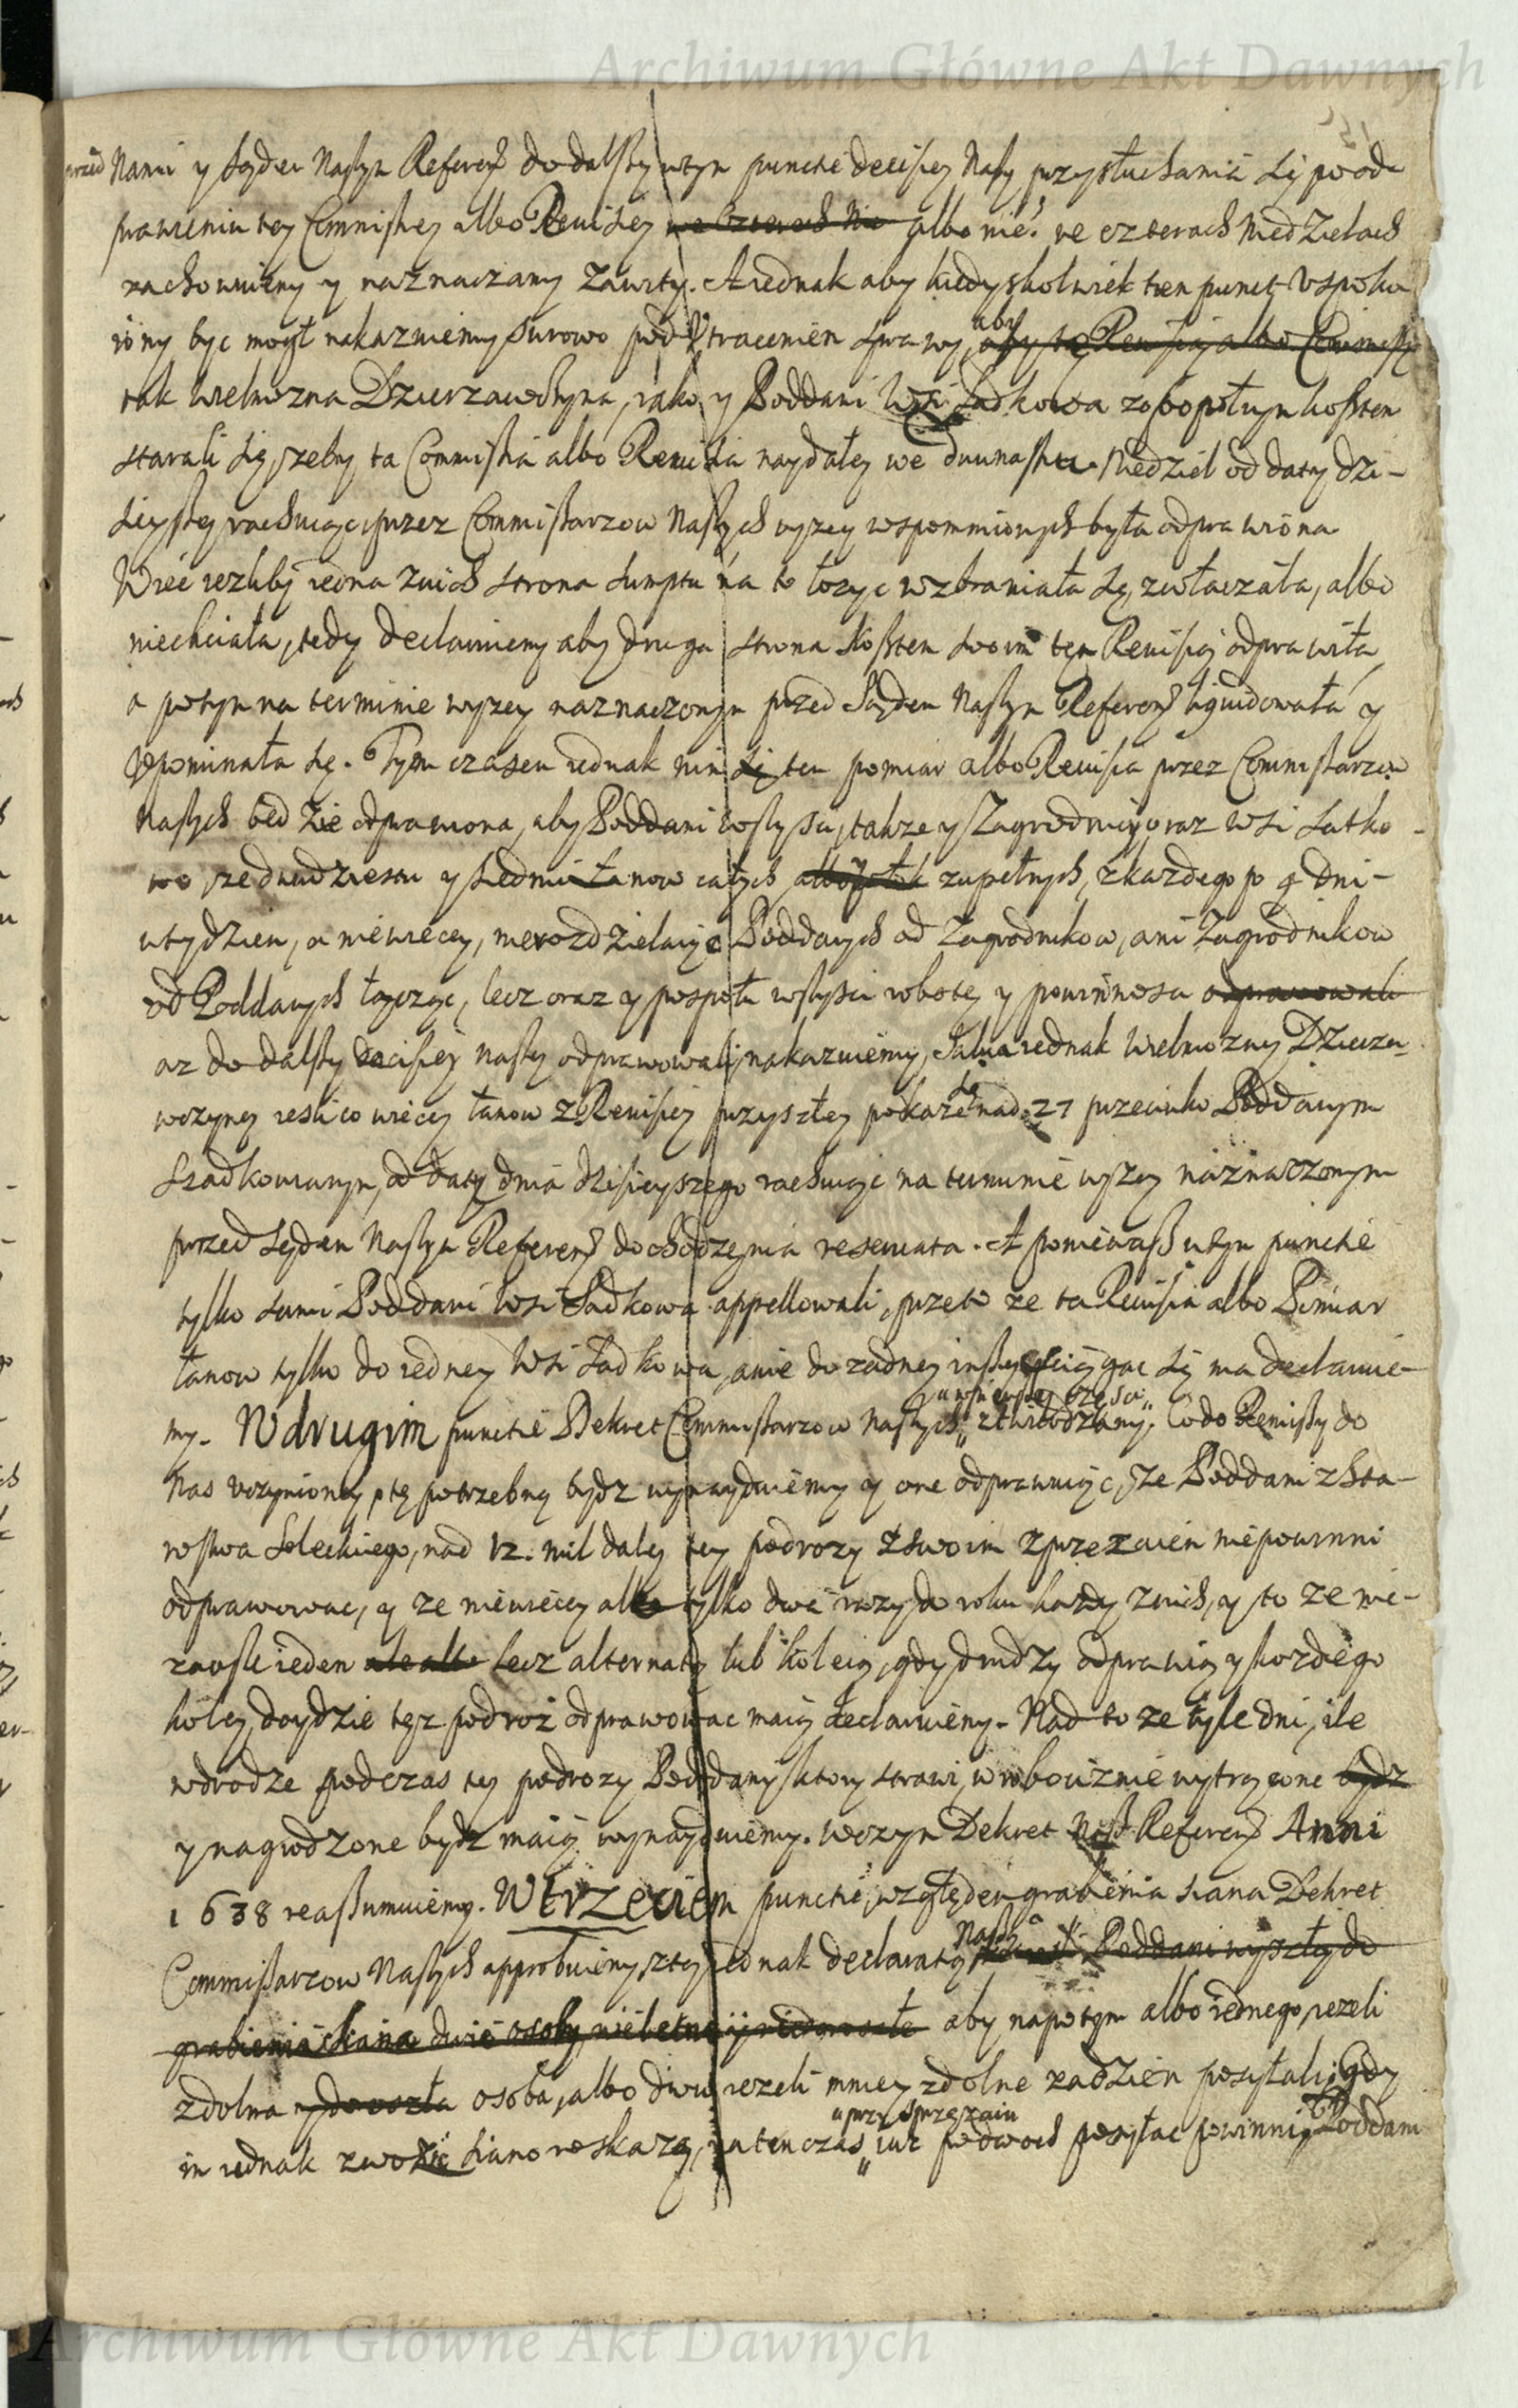 Archiwum Główne Akt Dawnych
przed Nami y Sądem Naszym Referen do dalszy wtym puncie decisiey Naszy przysłuchania się po od-
prawieniu tey Commissiey albo Reuisiey we czterech Nie albo nie? we czterech Niedzielach
zachowuiemy y naznaczamy zawity. A iednak aby kiedyszkolwiek ten punct vspoko
iony byc mogł nakazuiemy surowo pod straceniem sprawy, aby aby tę Reuisią albo Commissią
tak Wielmozna Dzierzawczyna, iako y Poddani Wsi Sadkowa zobopolnym kosztem
starali się, zeby ta Commissia albo Reuisia naydaley we dwunastu Niedziel od daty dzi-
sieyszey rachuiąc, przez Commissarzow Naszych wyzey wspomnionych była odprawiona
Wiec iezliby iedna znich strona sumptu na to łozyc wzbraniała się, zwłaczała, albo
niechciała, tedy declaruiemy aby druga strona kosztem swoim tę Reuisią odprawiła,
a potym na terminie wyzey naznaczonym przed Sądem Naszym Referen liquidowała y
vpominała się. Tym czasem iednak nim się ten pomiar albo Reuisia przez Commissarzow
Naszych będzie odprawiona, aby Poddani wszyscy, takze y Zagrodnicy oraz wsi Satko-
wo, ze dwudziestu y siedmi Łanow całych zupełnych, z kazdego po 4 dni-
wtydzien, a niewięcey, nierozdzielaiąc Poddanych od Zagrodnikow, ani Zagrodnikow
od Poddanych łączyc, lecz oraz y pospołu wszyscy robotę y powinnosc odprawowali
az do dalszy decisiey naszy odprawowali nakazuiemy, Salua iednak Wielmozny Dzierza-
wczyney iesli co więcey łanow z Reuisiey przyszłey pokaze się nad 27 przeciwko Poddanym
Szadkowanym, od daty dnia dzisieyszego rachuiąc na terminie wyzey naznaczonym
przed Sądem Naszym Referen dochodzenia reseruata. A poniewasz wtym puncie
tylko sami Poddani Wsi Sadkowa appellowali, przeto ze ta Reuisia albo Pomiar
łanow tylko do iedney Wsi Sadkowa, a nie do zadney inszey sciągac się ma declaruie-
my. W drugim puncie Dekret Commissarzow Naszych „wpiewszey częsci„ ztwirdzamy, Co do Remissy do
Nas vczynioney, tę potrzebną bydz wynayduiemy y one odprawuiąc, ze Poddani z Sta-
rostwa Soleckiego, nad 12. mil daley tey podrozy zswoim zprzęzaiem niepowinni
odprawowac, y ze niewięcey albo tylko dwa razy do roku kazdy znich, y to ze nie-
zawsze ieden ale albo lecz alternatą lub koleią, gdy drudzy odprawią y kazdego
koley doydzie tęz podroz odprawowac maią declaruiemy. Nad to ze tyle dni, ile
wdrodze podczas tey podrozy Poddany ktory strawi, w robociznie wytrącone bydz
y nagrodzone bydz maią wynayduiemy. Wczym Dekret Nasz Referen Anni
1638 reassumuiemy. W trzeciem puncie względem grabienia siana Dekret
Commissarzow Naszych approbuiemy, ztą iednak declaratią Naszą Poddani wyszłey do
grabienia siana dwie osoby nieletne y niedorosłe aby napotym albo iednego, iezeli
zdolna y dorosła osoba, albo dwu iezeli mniey zdolne zadzien posyłali, Gdy
im iednak zwozic siano roskazą, natenczas „przy sprzęzaiu„ iuz po dwoch posyłac powinni. Poddani
Archiwum Główne Akt Dawnych